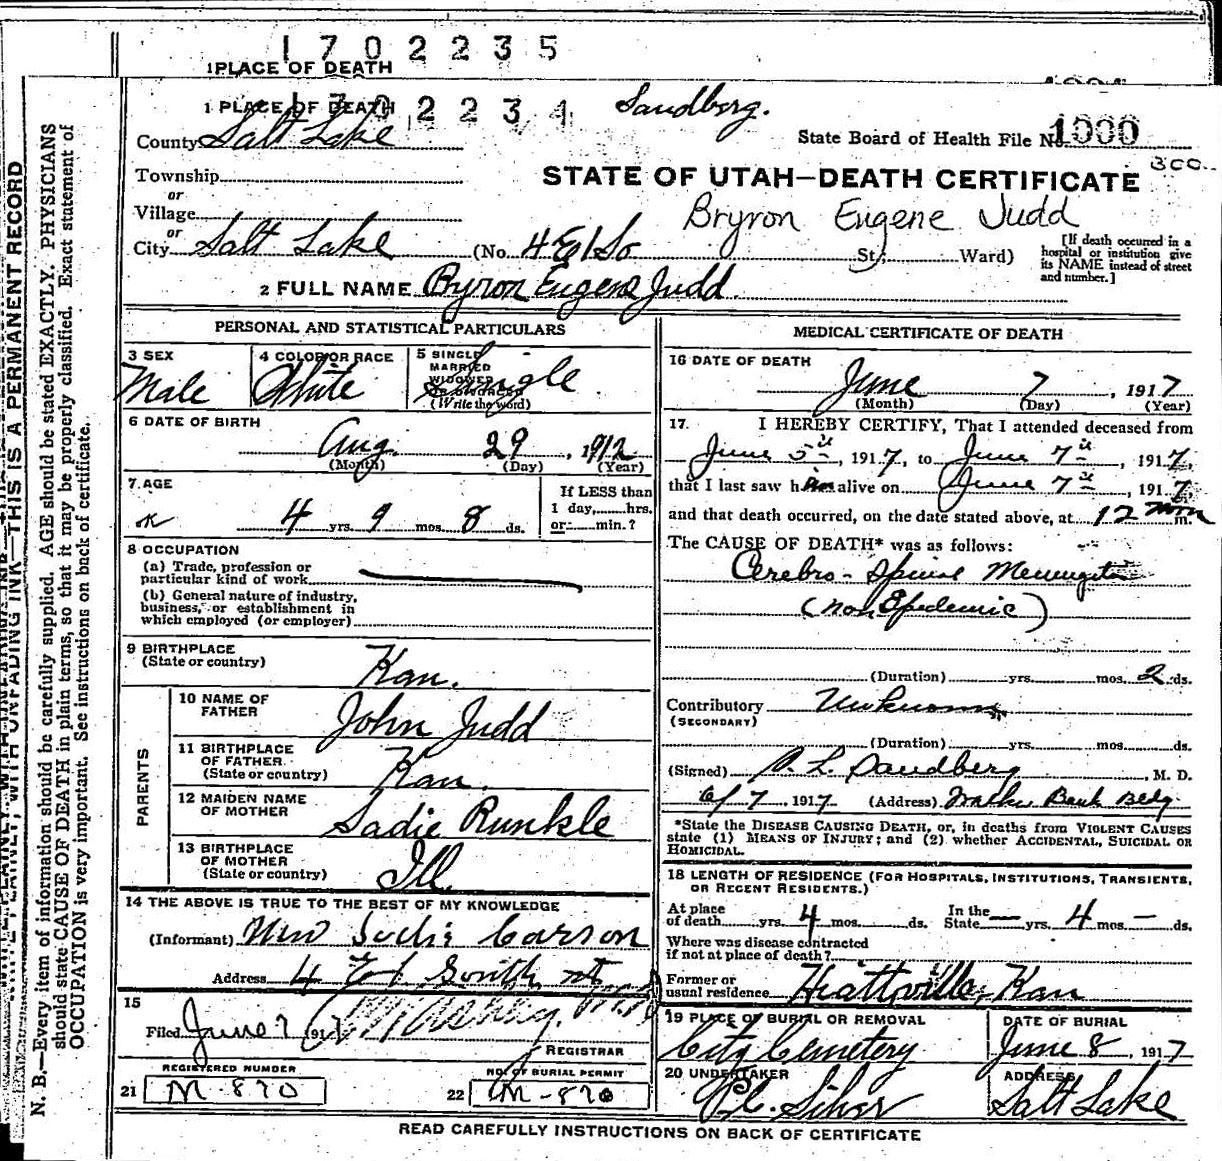 1702235
1 PLACE OF DEATH
1 PLACE OF DEATH 1702234 Sandberg.
County Salt Lake State Board of Health File No. 1000
300
Township
STATE OF UTAH—DEATH CERTIFICATE
or
Village
Bryron Eugene Judd
or
City Salt Lake (No. 4 E 1 So St; Ward) [If death occurred in a hospital or institution give its NAME instead of street and number.]
2 FULL NAME Byron Eugene Judd
PERSONAL AND STATISTICAL PARTICULARS
3 SEX Male
4 COLOR OR RACE White
5 SINGLE MARRIED WIDOWED OR DIVORCED (Write the word) Single
6 DATE OF BIRTH
Aug. 29, 1912
(Month) (Day) (Year)
7 AGE
4 yrs. 9 mos. 8 ds.
If LESS than
1 day, hrs.
or min.?
8 OCCUPATION
(a) Trade, profession or
particular kind of work
(b) General nature of industry,
business, or establishment in
which employed (or employer)
9 BIRTHPLACE
(State or country) Kan.
PARENTS
10 NAME OF
FATHER John Judd
11 BIRTHPLACE
OF FATHER
(State or country) Kan.
12 MAIDEN NAME
OF MOTHER Sadie Runkle
13 BIRTHPLACE
OF MOTHER
(State or country) Ill
14 THE ABOVE IS TRUE TO THE BEST OF MY KNOWLEDGE
(Informant) Carson
Address 4 E 1 South st
15
Filed June 7 191
REGISTRAR
REGISTERED NUMBER
21 M-870
NO. OF BURIAL PERMIT
22 M-870
MEDICAL CERTIFICATE OF DEATH
16 DATE OF DEATH
June 7, 1917
(Month) (Day) (Year)
17 I HEREBY CERTIFY, That I attended deceased from
June 5th, 1917, to June 7th, 1917,
that I last saw him alive on June 7th, 1917,
and that death occurred, on the date stated above, at 12 noon m.
The CAUSE OF DEATH* was as follows:
Cerebro-Spinal Meningitis
(non Epedemic)
(Duration) yrs. mos. 2 ds.
Contributory Unknown
(SECONDARY)
(Duration) yrs. mos. ds.
(Signed) L. Sandberg, M. D.
6/7, 1917 (Address) Walker Bank Bldg.
*State the DISEASE CAUSING DEATH, or, in deaths from VIOLENT CAUSES
state (1) MEANS OF INJURY; and (2) whether ACCIDENTAL, SUICIDAL OR
HOMICIDAL.
18 LENGTH OF RESIDENCE (FOR HOSPITALS, INSTITUTIONS, TRANSIENTS,
OR RECENT RESIDENTS.)
At place
of death yrs. 4 mos. ds. In the
State — yrs. 4 mos. — ds.
Where was disease contracted
if not at place of death?
Former or
usual residence Hiattville, Kan
19 PLACE OF BURIAL OR REMOVAL
City Cemetery
DATE OF BURIAL
June 8, 1917
20 UNDERTAKER
ADDRESS
Salt Lake
READ CAREFULLY INSTRUCTIONS ON BACK OF CERTIFICATE
THIS IS A PERMANENT RECORD
N. B.—Every item of information should be carefully supplied. AGE should be stated EXACTLY. PHYSICIANS
should state CAUSE OF DEATH in plain terms, so that it may be properly classified. Exact statement of
OCCUPATION is very important. See instructions on back of certificate.